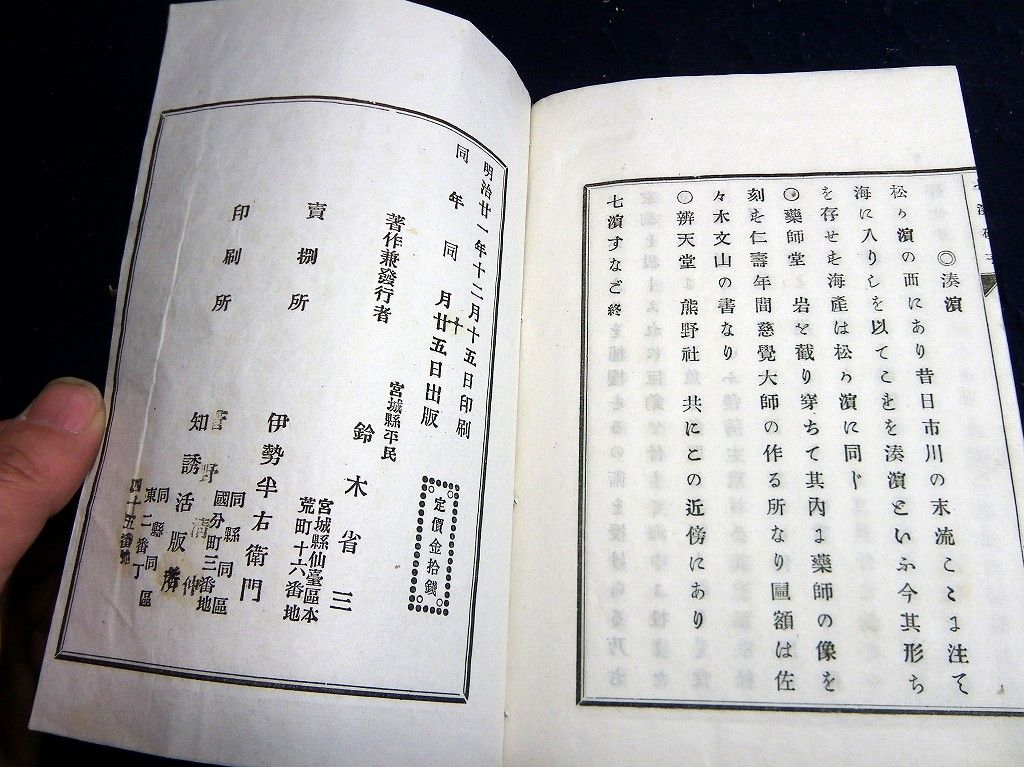 ◎湊濱
松ヶ濱の西にあり昔日市川の末流こゝに注て
海に入りしを以てこゝを湊濱といふ今其形ち
を存せむ海產は松ヶ濱に同じ
◎藥師堂 岩を截り穿ちて其內に藥師の像を
刻む仁壽年間慈覺大師の作る所なり扁額は佐
々木文山の書なり
◎辨天堂 熊野社 共にこの近傍にあり
七濱すなご終
明治廿一年十二月十五日印刷
同年同月廿五日出版
定價金拾錢
著作兼發行者
宮城縣平民
鈴木省三
宮城縣仙臺區本
荒町十六番地
賣捌所
伊勢半右衛門
同縣同區
國分町三番地
印刷所
知誘活版所
同縣同區
東二番丁
四十五番地